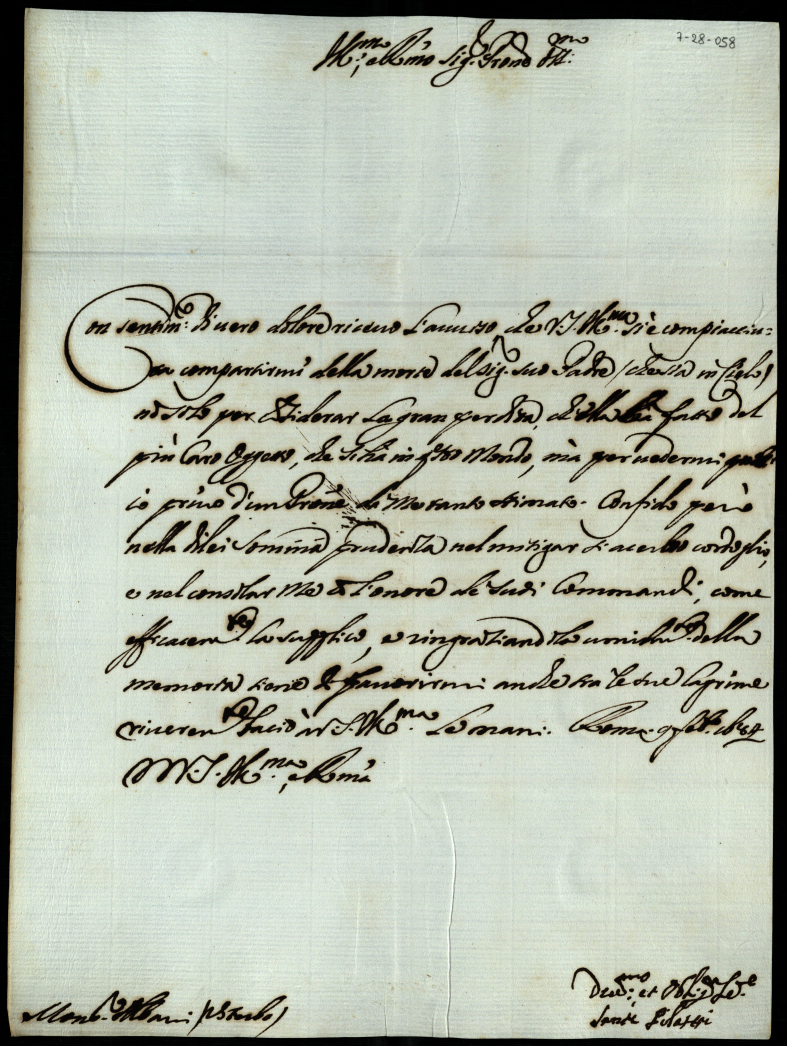 7-28-058
Ill.mo, e R.mo Sig.re Prone Oss.mo
Con sentim.to di vero dolore ricevo l'avviso che V.S. Ill.ma si è compiacciu=
ta compartirmi della morte del Sig.r suo Padre (che sia in Cielo)
nò solo per considerar la gran perdita, ch'ella hà fatto del
più caro oggetto, che s'hà in q.sto Mondo, mà per vedermi
io privo d'un Prone da Me tanto stimato. Confido però
nella di lei somma prudenza nel mitigar l'acerbo cordoglio,
e nel consolar Me con l'onore de suoi Commandi, come
efficacem.te la supplico, e ringratiandola umilm.te della
memoria tiene di favorirmi anche tra le sue lagrime
riverentem.te bacio à V.S. Ill.ma le mani. Roma 9
Di V.S. Ill.ma, e R.ma
Dev.mo, et Obl.mo Se.re
Sante Pilastri
Mons.r Albani (Urbano)